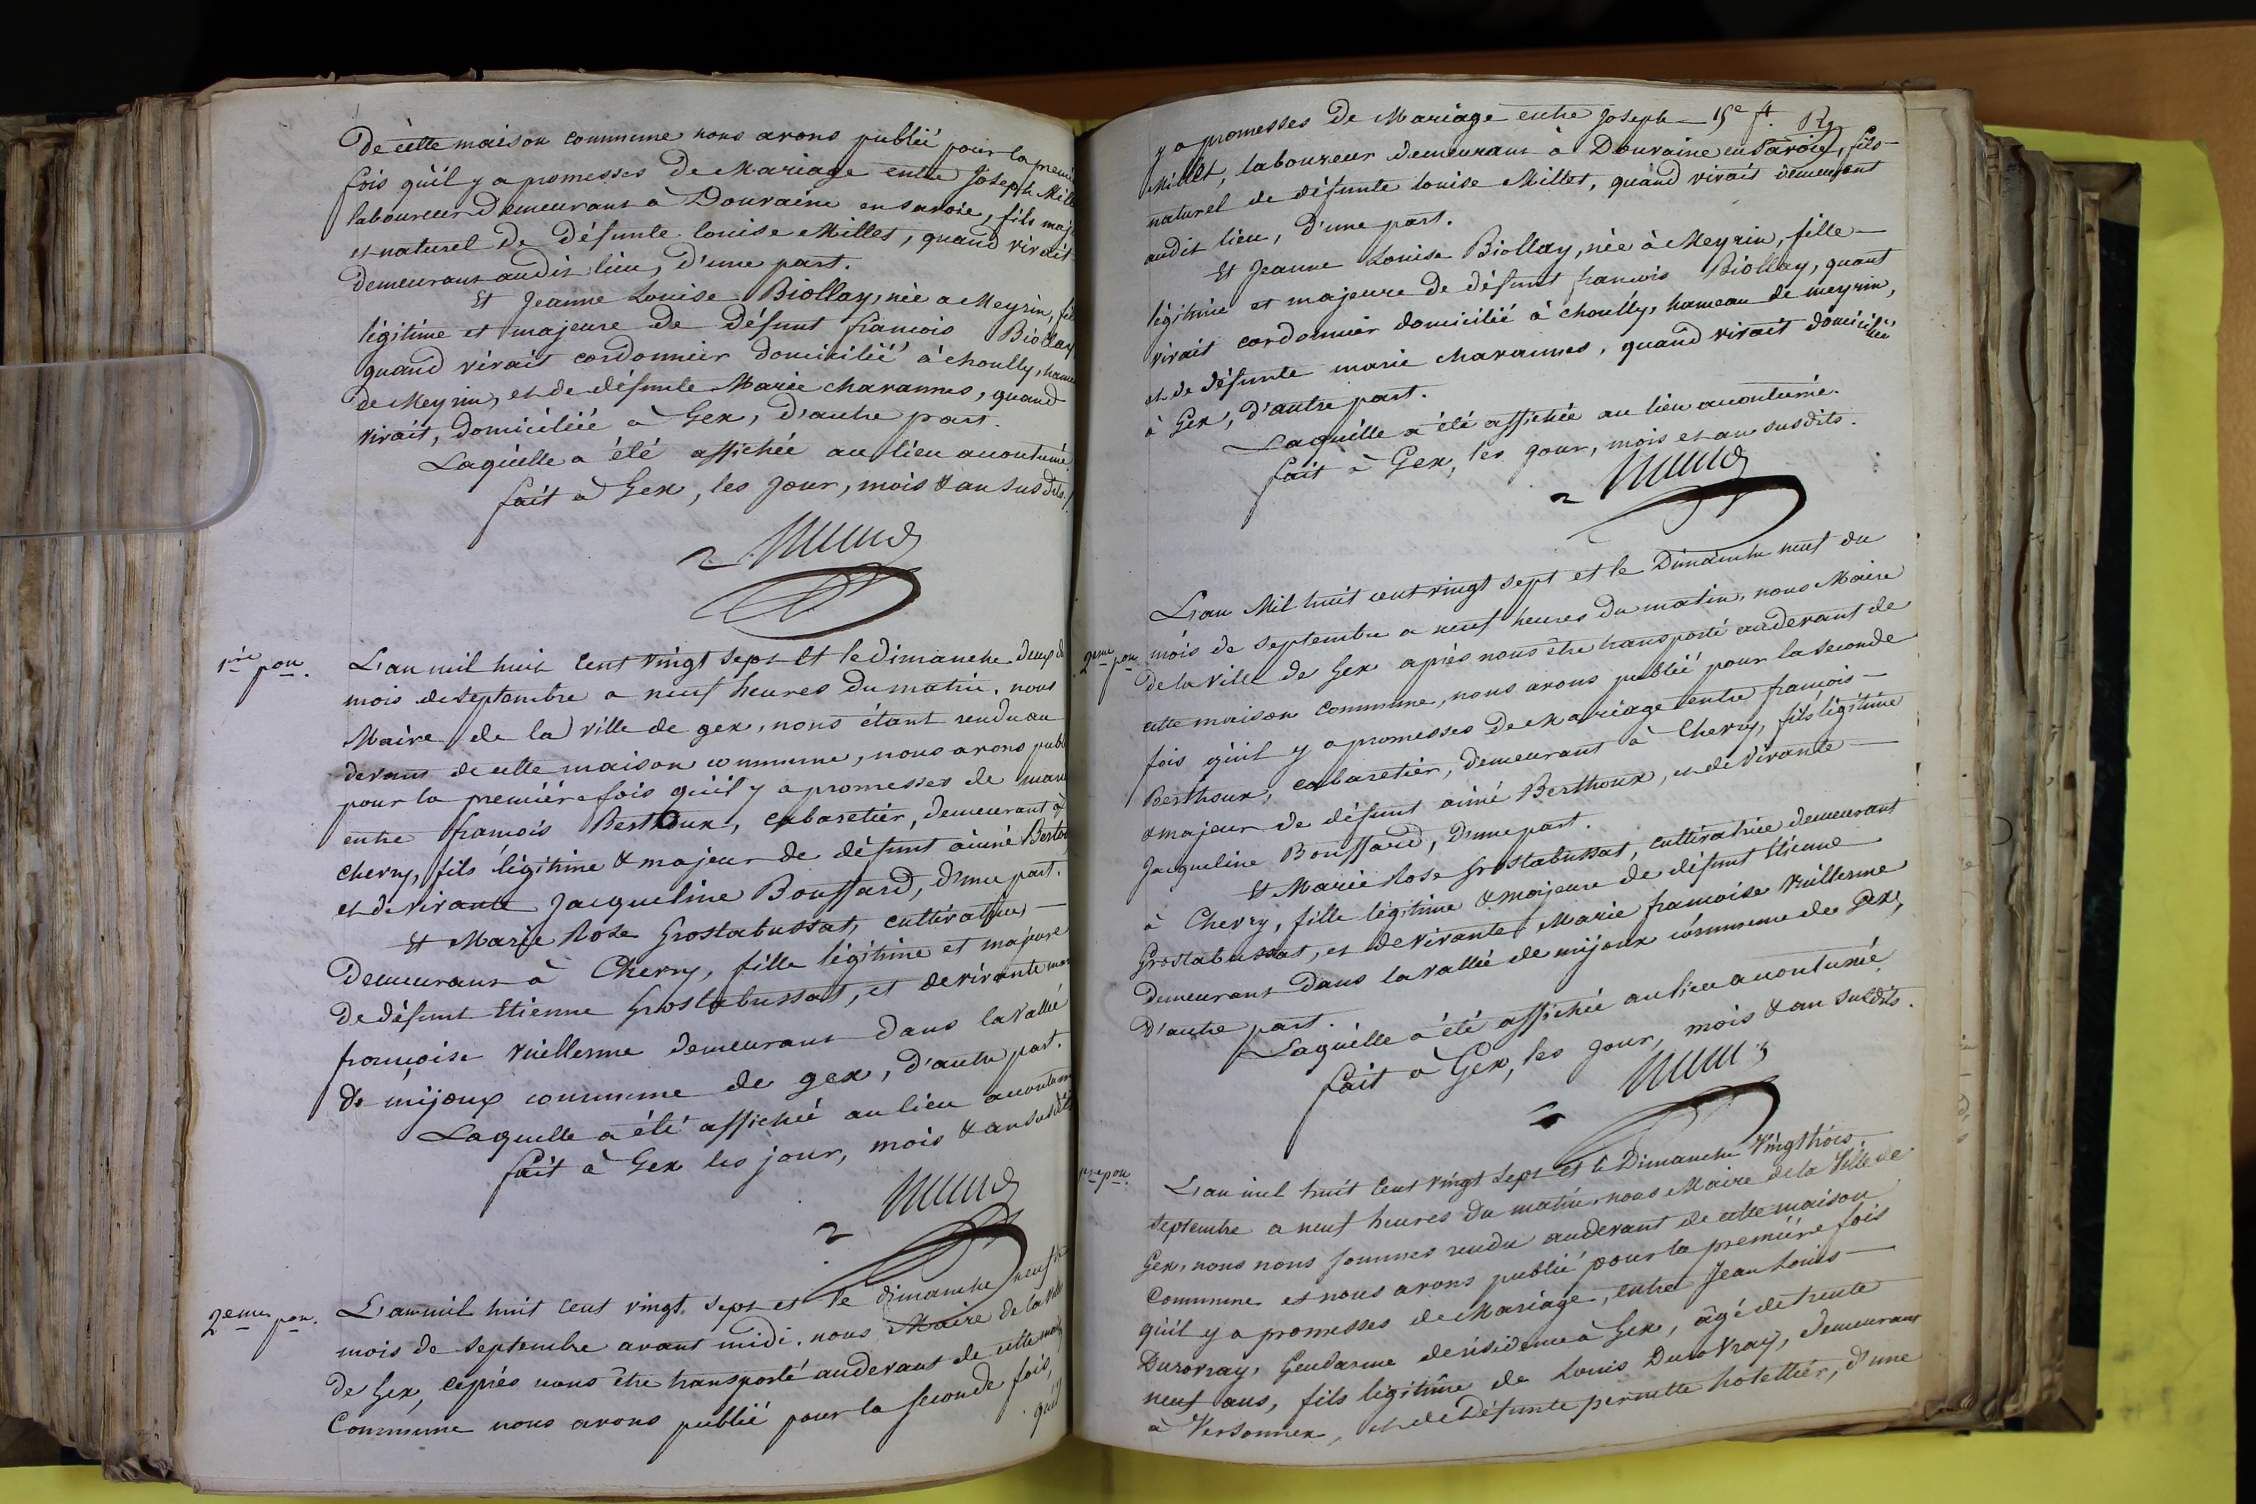 de cette maison commune nous avons publié pour la premi
fois qu'il y a promesses de Mariage entre Joseph Mille
laboureur demeurant à Douvaine en Savoie, fils maj
et naturel de défunte louise Millet, quand vivait
demeurant audit lieu, d'une part.
Et Jeanne Louise Biollay, née a Meyrin, fil
légitime et majeure de défunt françois Biollay
quand vivait cordonnier domicilié à choully, hame
de Meyrin, et de défunte Marie chavannes, quand
vivait, domiciliée à Gex, d'autre part.
Laquelle a été affichée au lieu acoutumé.
fait à Gex, les jour, mois & an susdits.
1ère pon.
L'an mil huit cent vingt sept et le dimanche deux du
mois de septembre a neuf heures du matin, nous
Maire de la ville de gex, nous étant rendu au
devant de cette maison commune, nous avons publ
pour la première fois qu'il y a promesses de mari
entre françois Berthoux, cabaretier, demeurant à
chevry, fils légitime & majeur de défunt aimé Berto
et de vivante Jacqueline Bouffard, d'une part.
Et Marie Rose Grostabussat, cultivatrice
demeurant à Chevry, fille légitime et majeure
de défunt Etienne Grostabussat, et de vivante mar
françoise Vuillerme demeurant dans la vallée
de mijoux commune de gex, d'autre part.
Laquelle a été affichée au lieu acoutum
fait à Gex les jour, mois & an susdits
2eme pon.
L'an mil huit cent vingt sept et le dimanche neuf du
mois de septembre avant midi, nous Maire de la vill
de Gex, après nous être transporté audevant de cette mais
Commune nous avons publié pour la seconde fois,
qu'il
y a promesses de Mariage entre Joseph — 15e ft.
Millet, laboureur demeurant à Douvaine en Savoie, fils
naturel de défunte louise Millet, quand vivait demeurant
audit lieu, d'une part.
Et Jeanne Louise Biollay, née à Meyrin, fille
légitime et majeure de défunt francois Biollay, quant
vivait cordonnier domicilié à choully, hameau de meyrin,
et de défunte marie chavannes, quand vivait domiciliée
à Gex, d'autre part.
Laquelle a été affichée au lieu acoutumé.
fait à Gex, les jour, mois et an susdits.
2eme pon
L'an Mil huit cent vingt sept et le Dimanche neuf du
mois de septembre a neuf heures du matin, nous Maire
de la ville de Gex après nous être transporté audevant de
cette maison commune, nous avons publié pour la seconde
fois qu'il y a promesses de Mariage entre francois
Berthoux, cabaretier, demeurant à Chevry, fils légitime
& majeur de défunt aimé Berthoux, et de vivante
Jacqueline Bouffard, d'une part.
Et Marie Rose Grostabussat, cultivatrice demeurant
à Chevry, fille légitime & majeure de défunt Etienne
Grostabussat, et de vivante Marie francoise Vuillerme
demeurant dans la vallée de mijoux commune de Gex,
d'autre part.
Laquelle a été affichée au lieu acoutumé
fait à Gex, les jour, mois & an susdits.
1re pon.
L'an mil huit cent vingt sept et le Dimanche Vingt trois
septembre a neuf heures du matin, nous Maire de la Ville de
Gex, nous nous sommes rendu audevant de cette maison
Commune et nous avons publié pour la première fois
qu'il y a promesses de Mariage, entre Jean Louis
Duvovray, Gendarme de résidence à Gex, âgé de trente
neuf ans, fils légitime de Louis Duvovray, demeurant
à Versonnex, et de défunte pernette hotellier, d'une